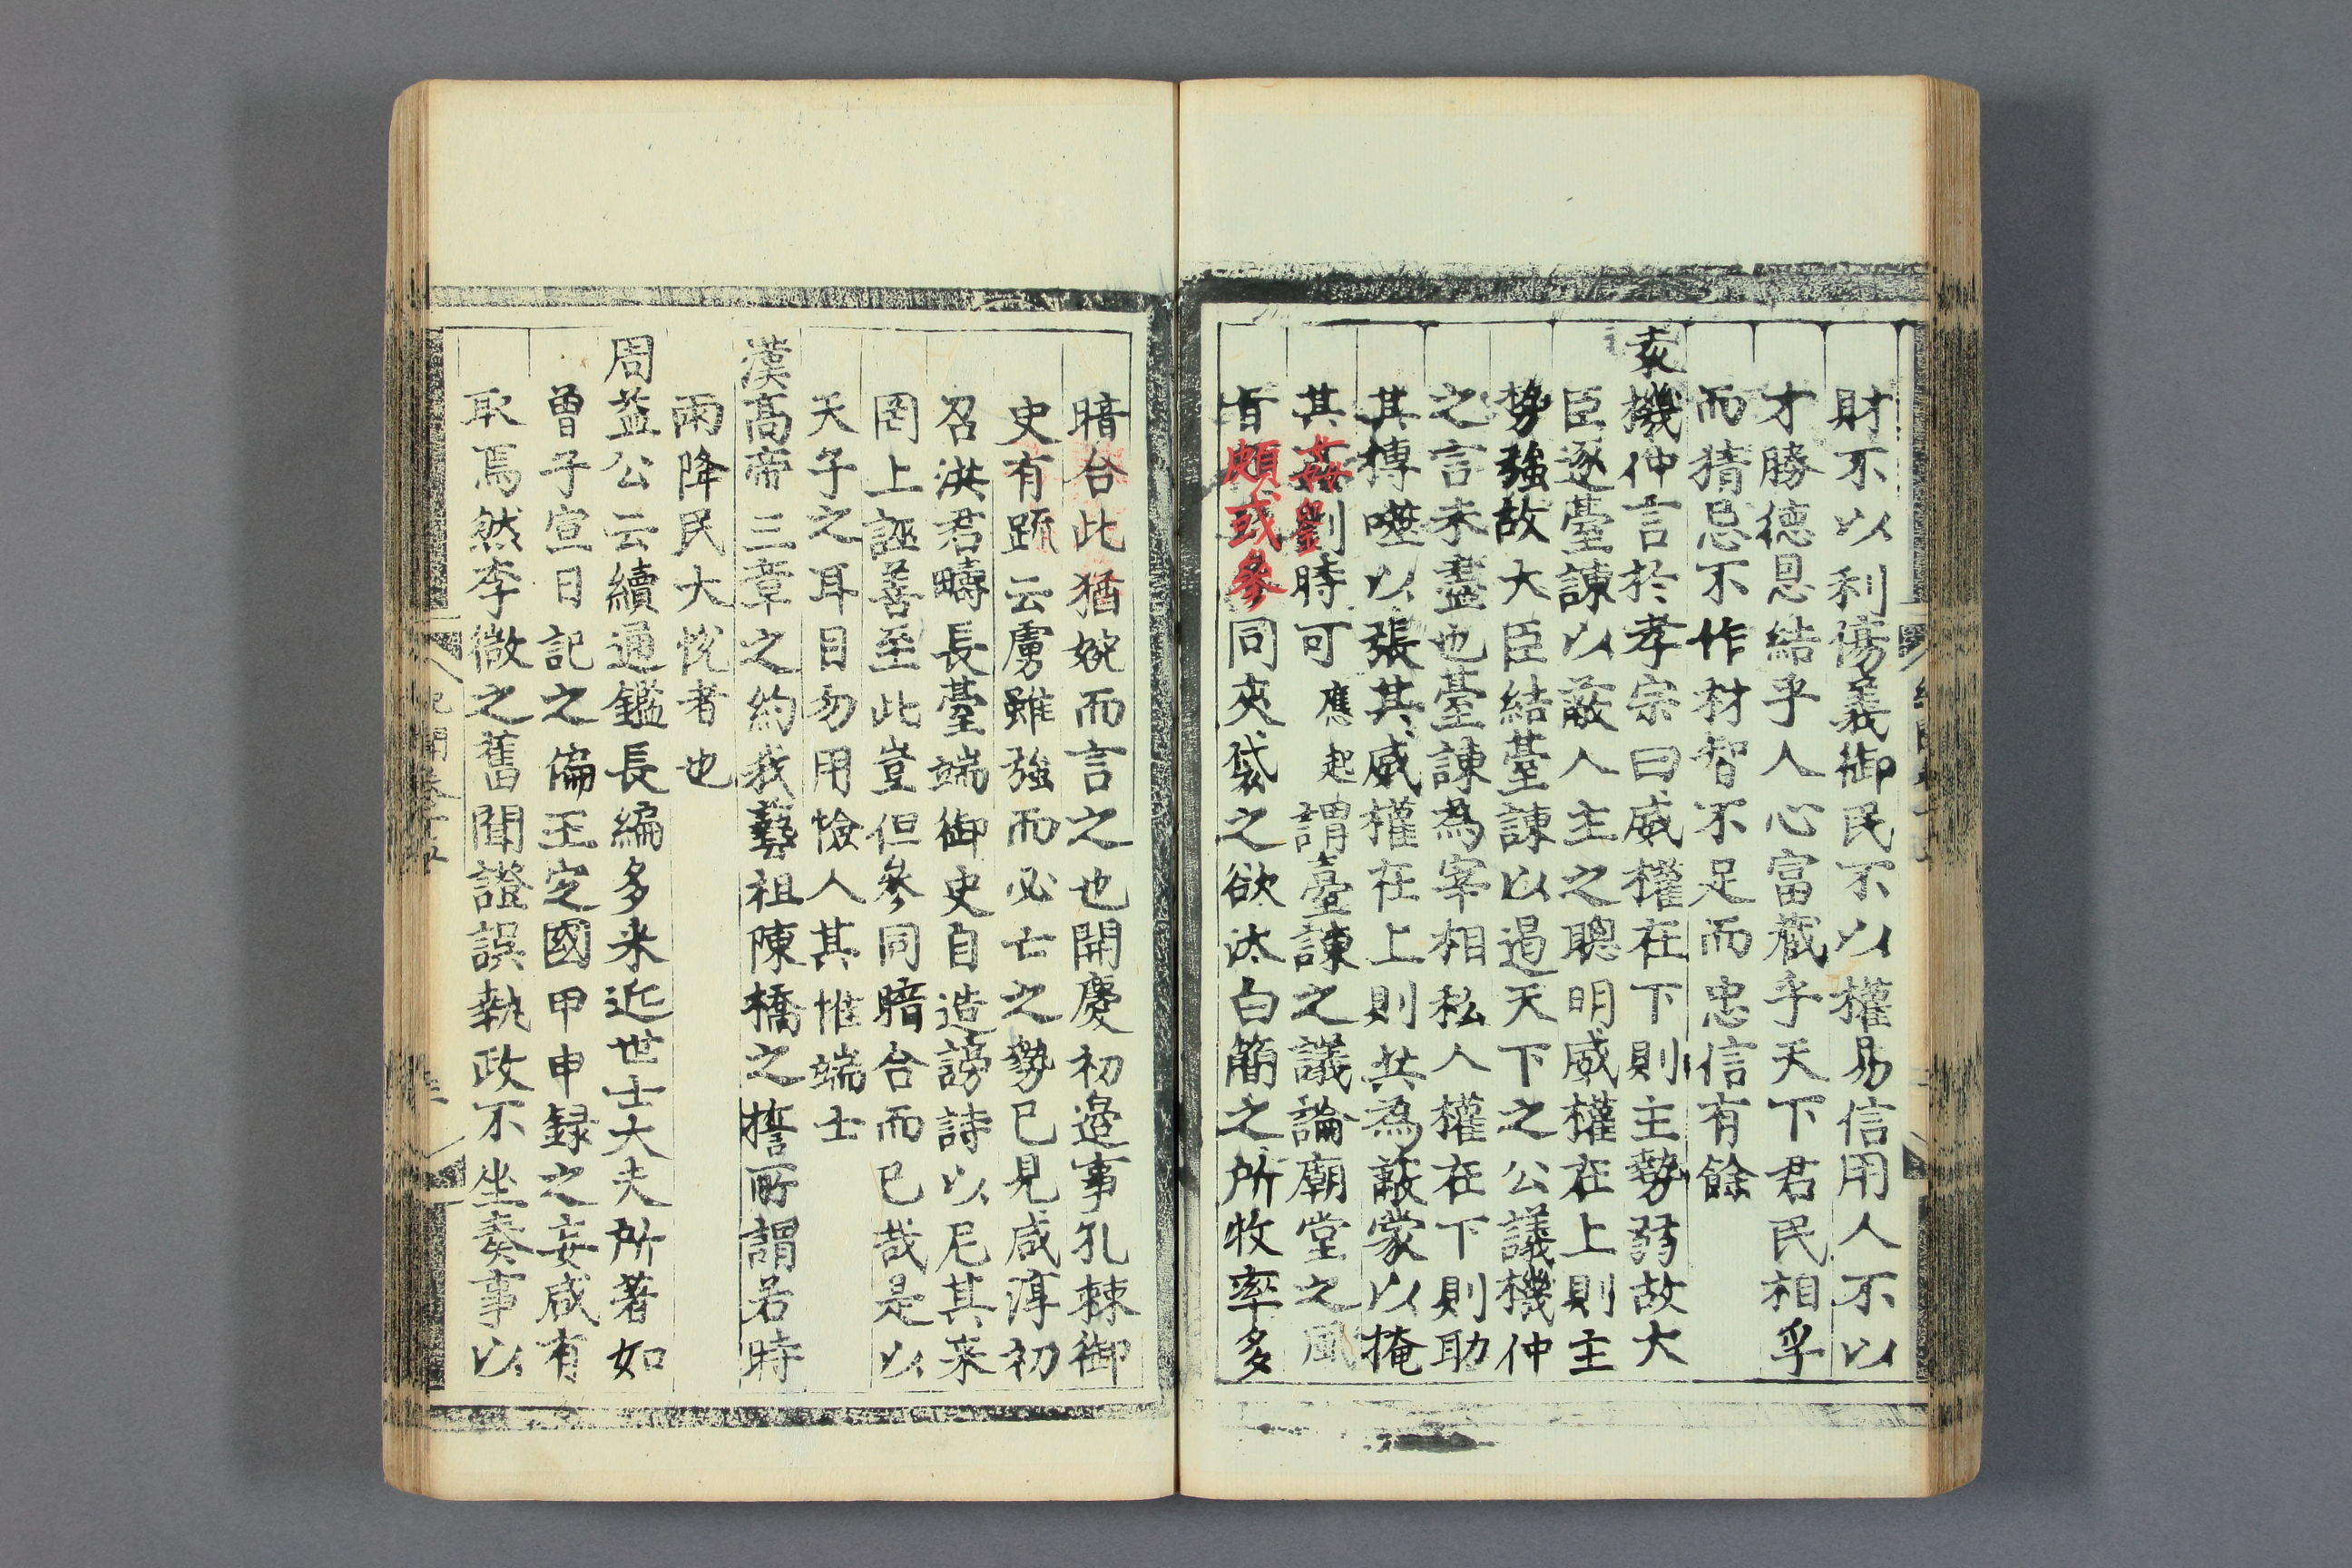 財不以利傷義御民不以權易信用人不以
才勝德恩結乎人心富藏乎天下君民相孚
而猜忌不作材智不足而忠信有餘
袤機仲言於孝宗曰威權在下則主勢弱故大
臣逐臺諫以蔽人主之聰明威權在上則主
勢強故大臣結臺諫以遏天下之公議機仲
之言未盡也臺諫為宰相私人權在下則助
其搏噬以張其威權在上則共為蔽蒙以掩
其姦劉時可應起謂臺諫之議論廟堂之風
旨頗或參同夾袋之欲汰白簡之所收率多
暗合此猶婉而言之也開慶初邊事孔棘御
史有疏云虜雖強而必亡之勢已見咸淳初
召洪君疇長臺端御史自造謗詩以尼其来
罔上誣善至此豈但參同暗合而已哉是以
天子之耳目勿用憸人其惟端士
漢高帝三章之約我藝祖陳橋之誓所謂若時
雨降民大悅者也
周益公云續通鑑長編多采近世士大夫所著如
曾子宣日記之偏王定國甲申録之妄咸有
取焉然李微之舊聞證誤執政不坐奏事以